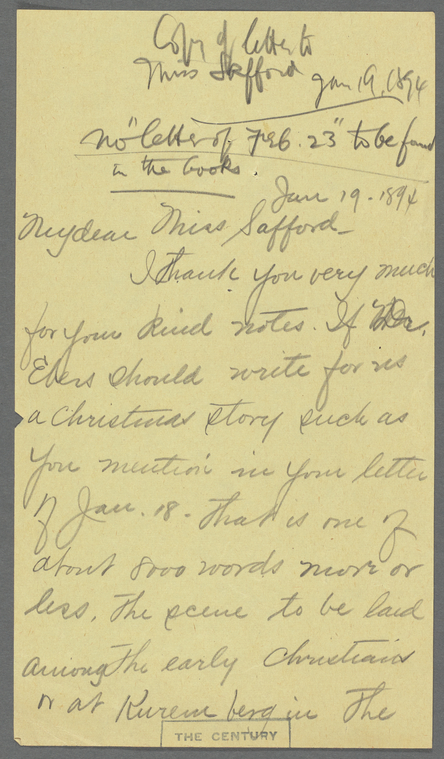 Copy of letter to
Miss Safford Jan 19, 1894
No "letter of Feb. 23" to be found
in the books.
Jan 19 - 1894
My dear Miss Safford -
I thank you very much
for your kind notes. If Dr.
Ebers should write for us
a Christmas story such as
you mention in your letter
of Jan. 18 - that is one of
about 8000 words more or
less, the scene to be laid
among the early Christians
or at Nuremberg in the
THE CENTURY